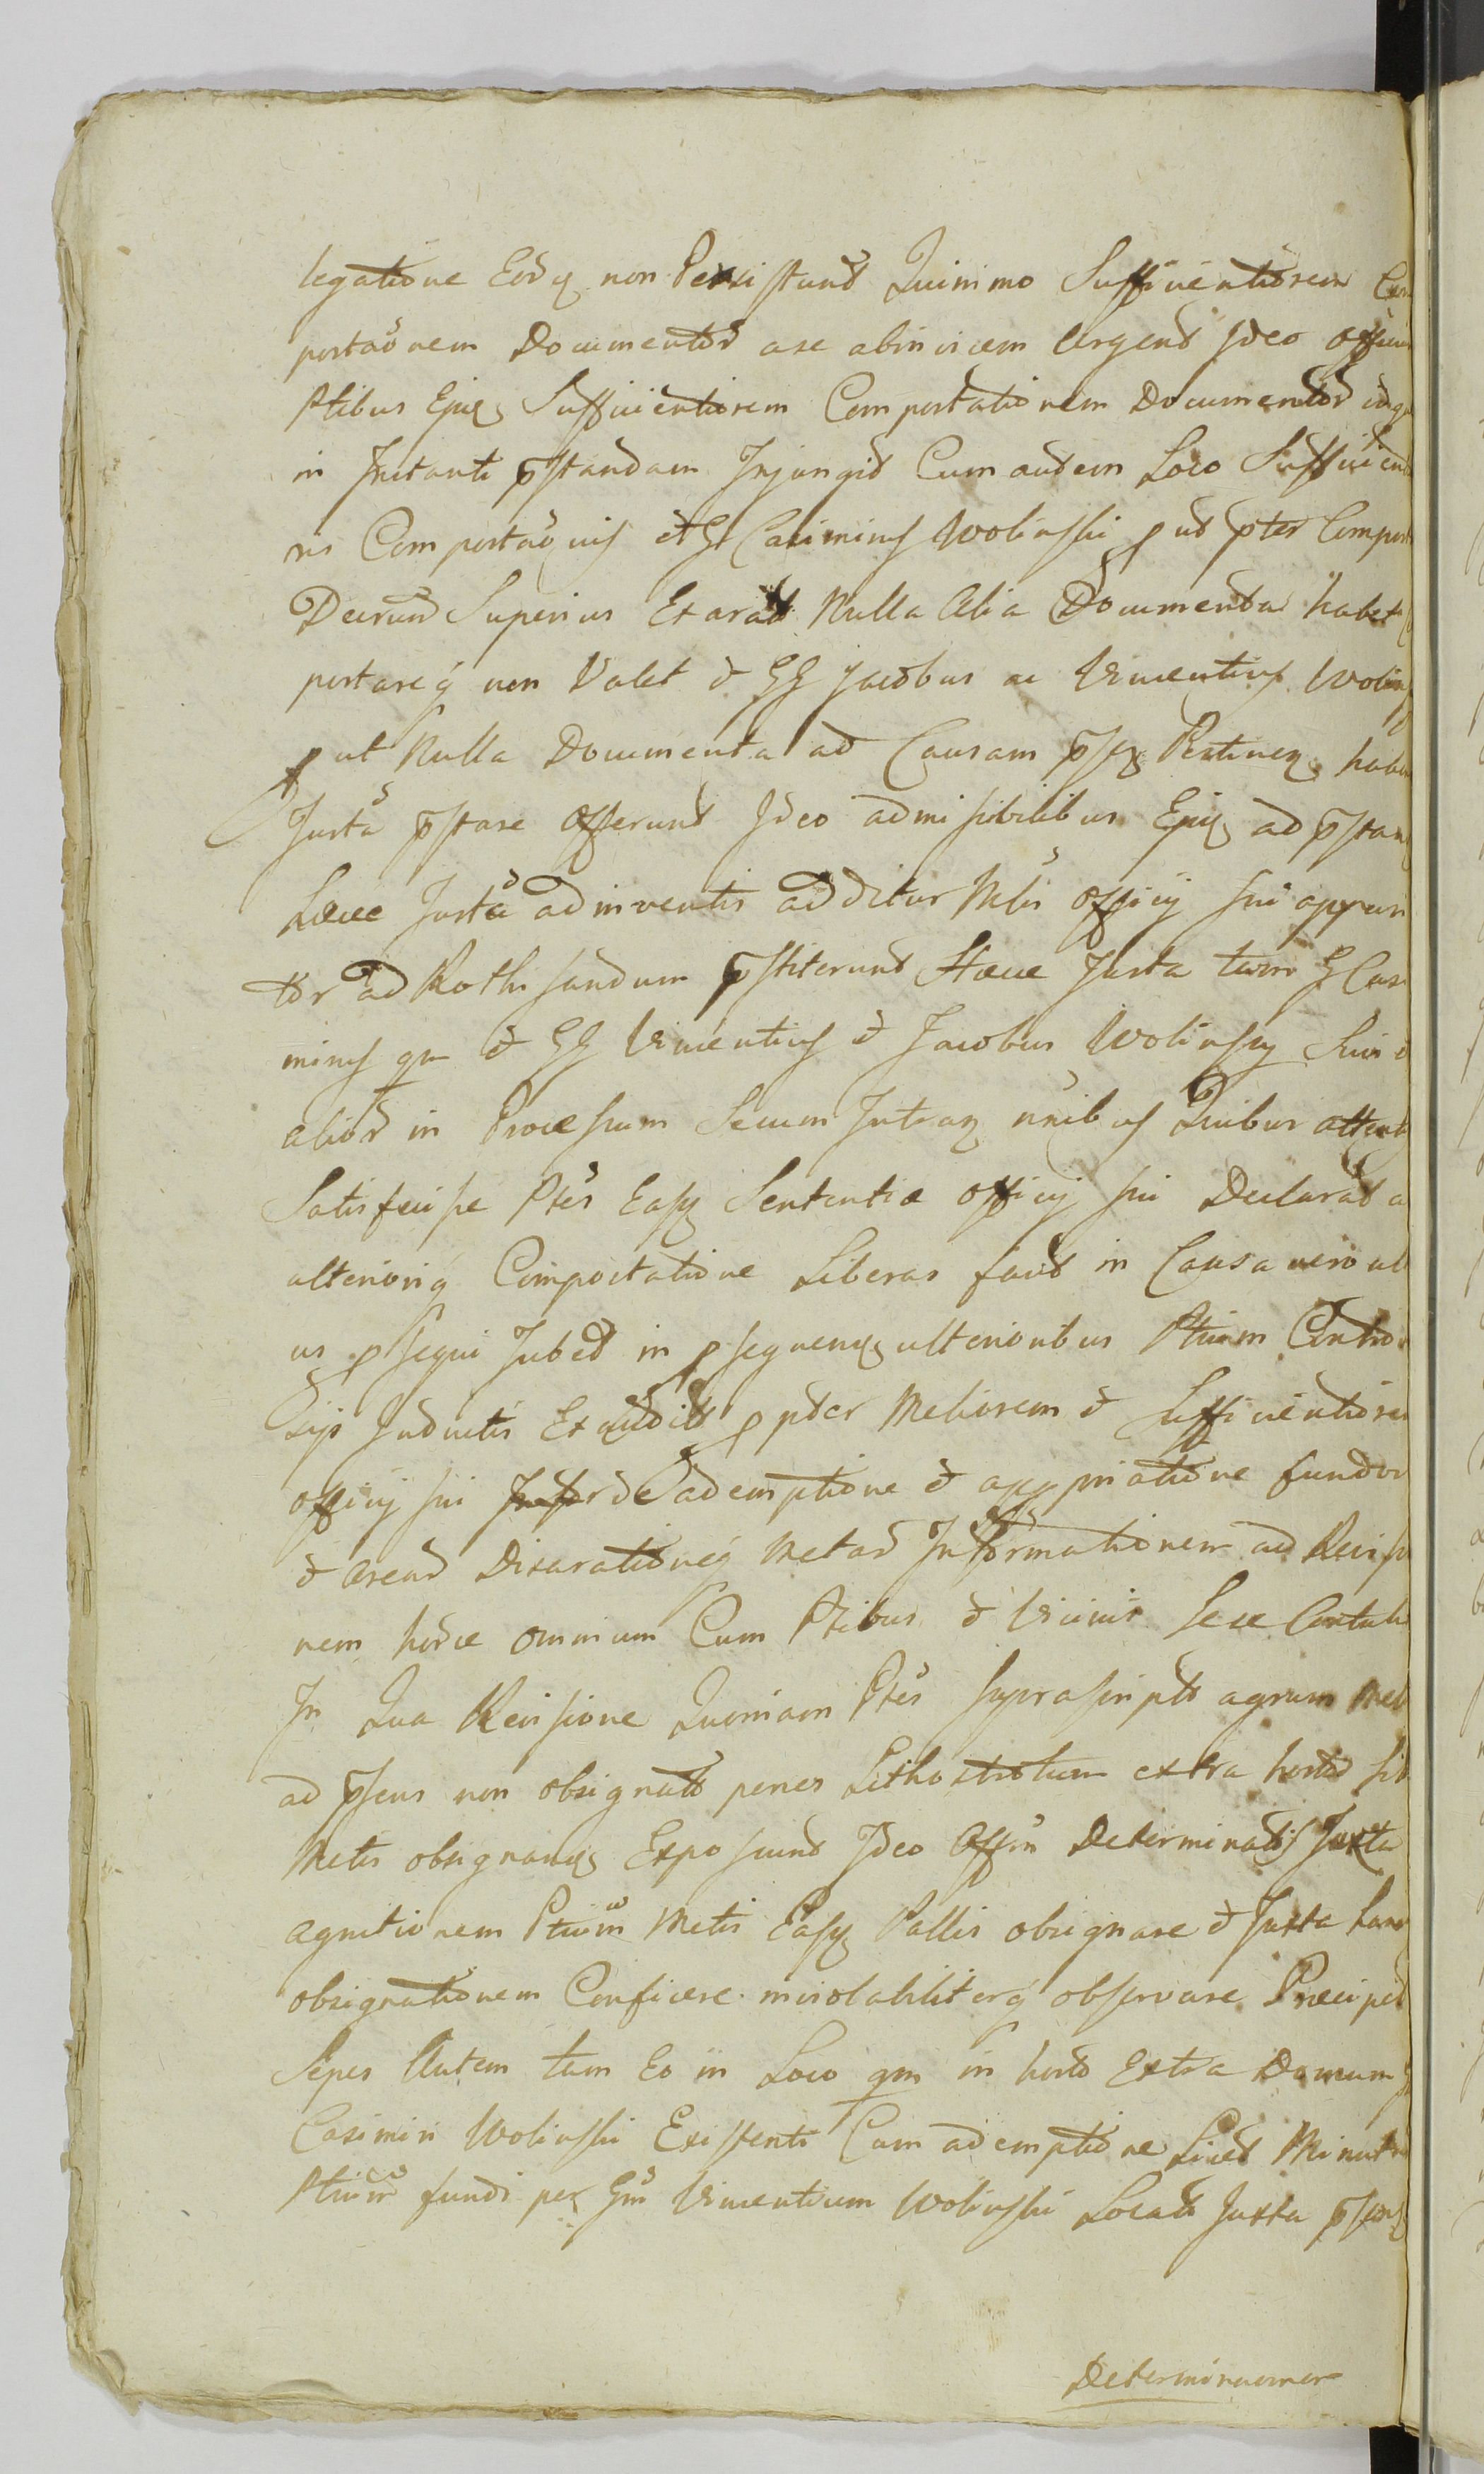 legatione Eodq non Persistund Quinimo Sufficientiorem
portaonem Documentor ase abinvicem Urgend Ideo officiu
Ptibus Ejusq Sufficientiorem Comportationem Documentor idq
in Instanti pstandam Injungit Cum autem Loco Sufficien
ris Comportaonis et G Casimirus Wolinski put pter Compor
Decrum Superius Exarat Nulla Alia Documenta habet
portareq non Valet et GG Jacobus ac Vincentius Wolins
put Nulla Documenta ad Causam psq Pertinen habe
Jurta pstare Offerunt Ideo admissibilibus Ejusq ad pstan
Hæce Jurta adinventis additur Mlis officij sui appari
tor ad Rothisandum pstiterunt Hæce Jurta tam G Casi
mirus qm et GG Vincentius et Jacobus Wolinscy Suis et
alior in Processum Secum Intran nnibus Quibus attent
Satisfecisse Ptes Easq Sententiæ officij sui Declarat a
ulterioriq Comportatione Liberas facit in Causa vero ul
us psequi Jubet in psequen ulterioribus Ptium Contro
sijs Inductis Exaudit ppter Meliorem et Sufficientiore
officij sui de ademptione et appriatione fundor
et arear Disarationeq Metar Informationem ad Revisio
nem horce omnium Cum Ptibus et Vicinis sese Contuli
In Qua Revisione Quoniam Ptes suprascript agrum Met
ad psens non obsignat penes Lithostrotum extra hort sit
Metis obsignan Exposcunt Ideo Offm Determinatis Juxta
agnitionem Ptium Metis Easq Pallis obsignare et Juxta hanc
obsignationem Conficere inviolabiliterq observare Præcipit
Sepes Autem tam Eo in Loco qm in horto Extra Domum
Casimiri Wolinski Existenti Cum ademptione Licet Minut
Ptium fundi per Gm Vincentium Wolinski Locat Juxta psen
Determinaomem